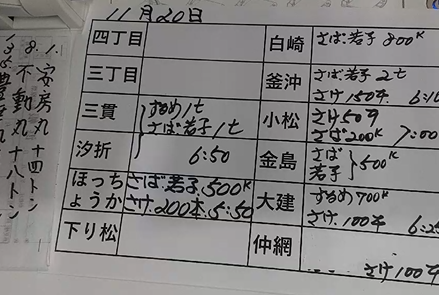 11月20日
四丁目
三丁目
三貫
するめ1t
さば.若子1t
汐折
6:50
ほっち
ょうか
さば.若子.500K
さけ.200本.5:50
下り松
白崎
さば.若子800K
釜沖
さば若子2t
さけ150本
小松
さけ50本
さば200K
7:00
金島
さば
若子
500K
大建
するめ700K
さけ.100本
仲網
さけ100本
1.安房丸十四トン
8.不動丸十八トン